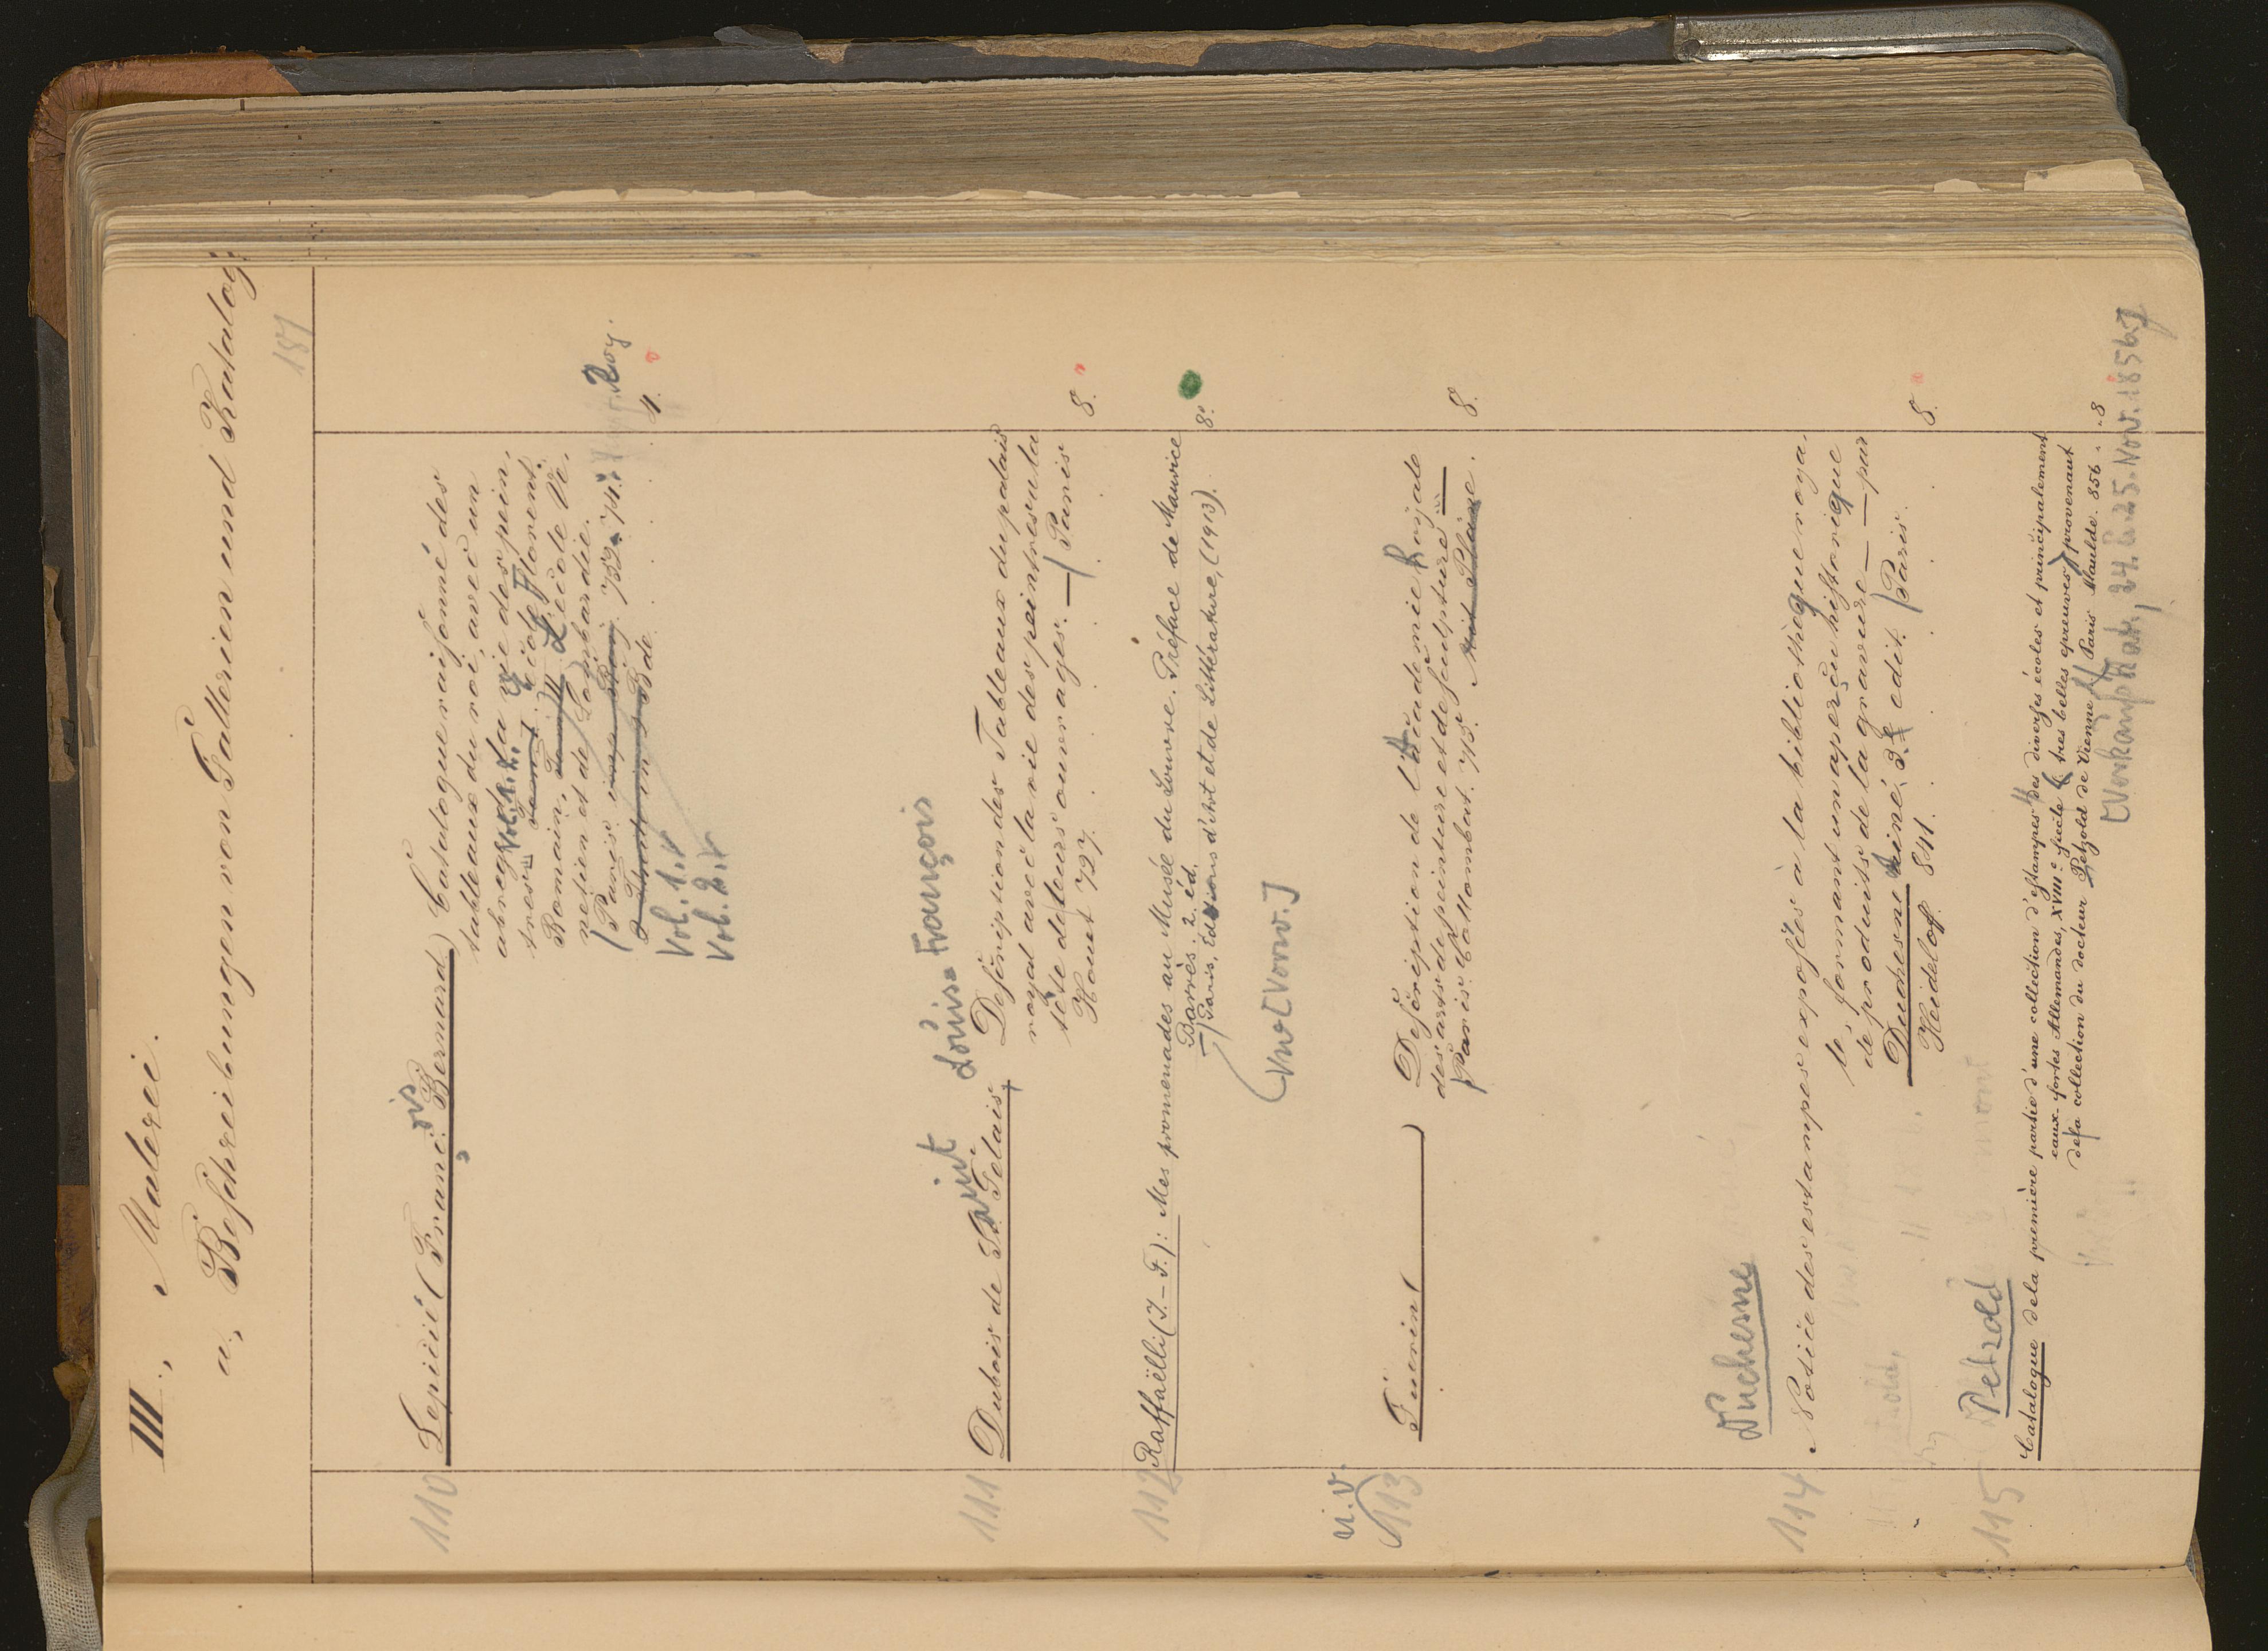 III., Malerei.
a., Beschreibungen von Gallerien und Katalog.
187
110 Lepicié (Franc. ois Bernard) Catalogue raisonné des
tableaux du roi, avec un
abregé de la vie des pein-
tres. Vol. 1. Tom I. L'école Florent:
Romain, Tom II L'école Vé-
netien et de Lombardie.
(Paris. imp. Roy. 752. 74. Impr. Roy.
2 Thom in 1 Bde 4.
Vol. 1. v
Vol. 2. v
Louis-François
111 Dubois de St. aint Gelais, Description des Tableaux du palais
royal avec la vie des peintres en la
tête de leurs ouvrages. — / Paris
Houet 727. 8.
112 Raffaëlli (J.-F.): Mes promenades au Musée du Louvre. Préface de Maurice
Barrès. 2. éd.
—/ Paris, Editions d'Art et de Littérature, (1913). 8°.
(VW [Vorw.]
u.V.
113 Guerin ( ) Description de l'Academie Royale
des arts de peinture et de sculpture. —
/ Paris. Collombat. 715. Mit Pläne. 8.
Duchesne
114 Notice des estampes exposées à la bibliothèque roya-
le, formant un aperçu historique
de produits de la gravure — — par
Duchesne ainé, 3.e edit. / Paris.
Heidelof. 841. 8.
115 Petzold
Catalogue de la première partie d'une collection d'estampes des diverses écoles et principalement
eaux-fortes Allemandes, XVIII.e siecle (tres belles epreuves) provenant
de la collection du docteur Petzold de Vienne / Paris Maulde. 856. 8
[Verkauf: Nat., 24. u. 25. Nov. 1856.]